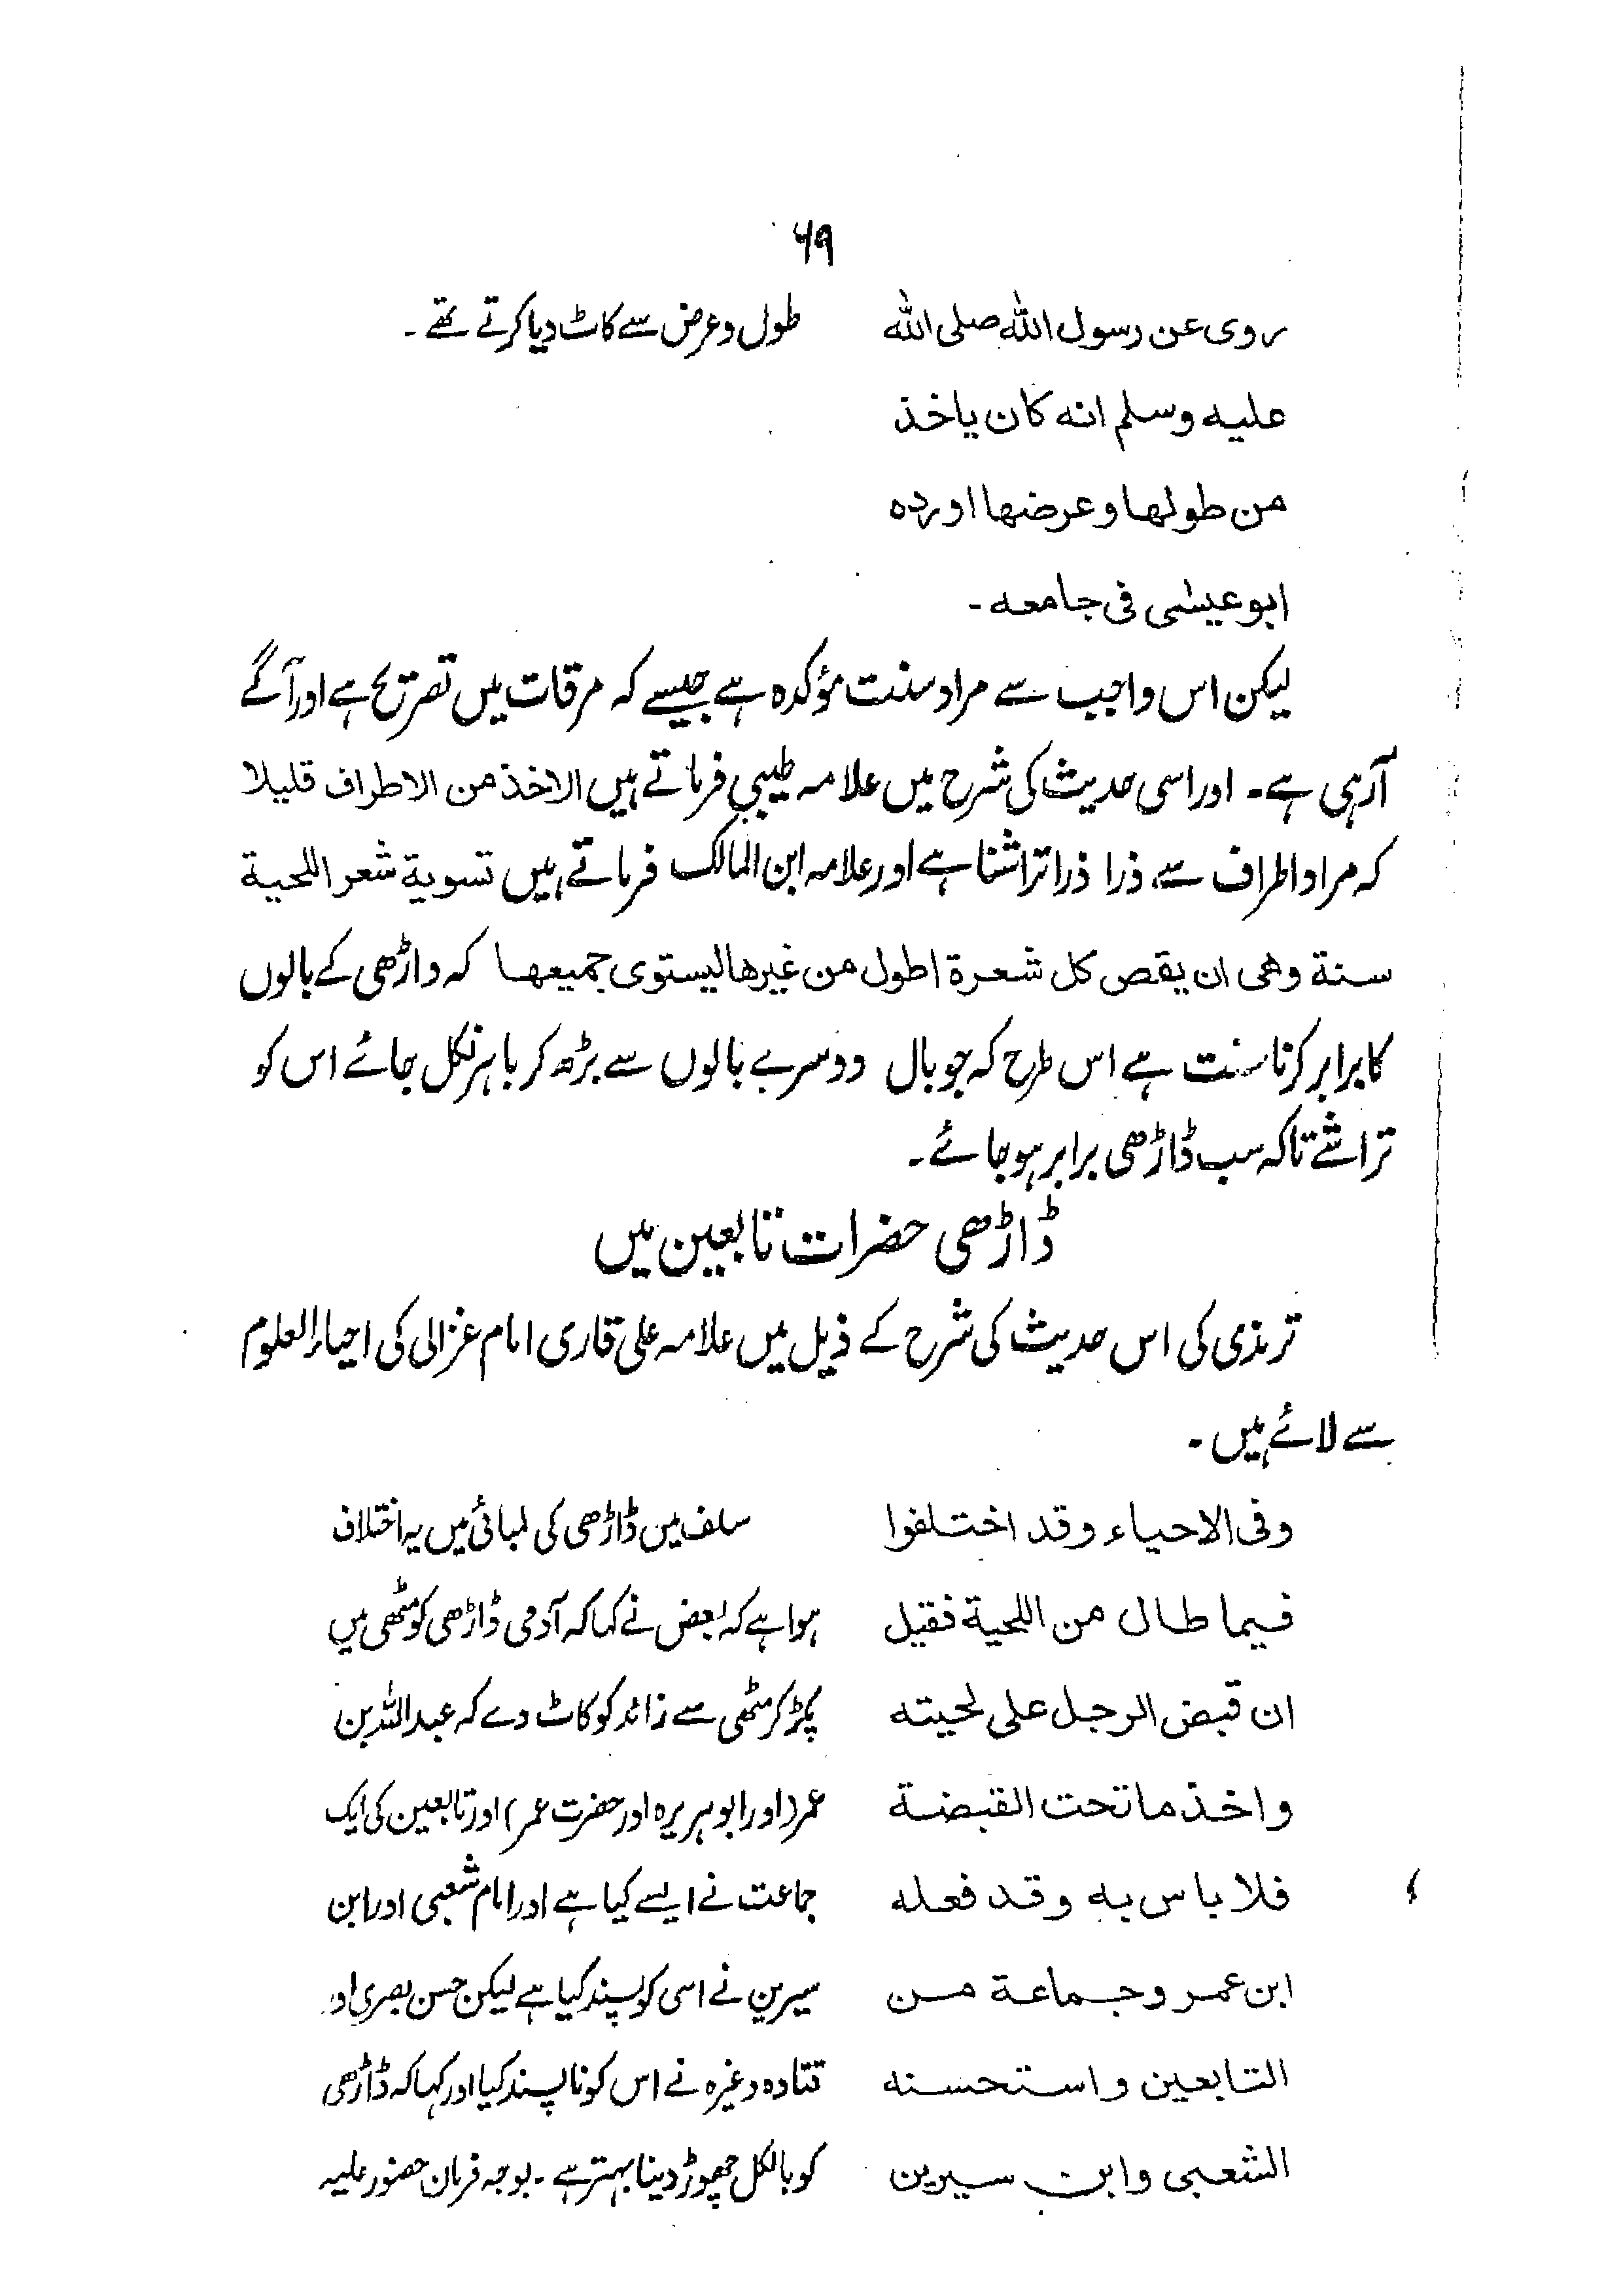 ۶۹
روی عن رسول الله صلی الله
علیه وسلم انه کان یاخذ
من طولها وعرضها اورده
ابو عیسٰی فی جامعه۔
طول و عرض سے کاٹ دیا کرتے تھے۔
لیکن اس واجب سے مراد سنت مؤکدہ ہے جیسے کہ مرقات میں تصریح ہے اور آگے
آرہی ہے۔ اور اسی حدیث کی شرح میں علامہ طیبی فرماتے ہیں الاخذ من الاطراف قلیلا
کہ مراد اطراف سے ذرا ذرا تراشنا ہے اور علامہ ابن المالک فرماتے ہیں تسویة شعر اللحیة
سنة وهی ان یقص کل شعرة اطول من غیرها لیستوی جمیعها کہ داڑھی کے بالوں
کا برابر کرنا سنت ہے اس طرح کہ جو بال دوسرے بالوں سے بڑھ کر باہر نکل جائے اس کو
تراشے تاکہ سب ڈاڑھی برابر ہو جائے۔
ڈاڑھی حضرات تابعین میں
ترمذی کی اس حدیث کی شرح کے ذیل میں علامہ علی قاری امام غزالی کی احیاء العلوم
سے لائے ہیں۔
وفی الاحیاء وقد اختلفوا
فیما طال من اللحیة فقیل
ان قبض الرجل علی لحیته
واخذ ما تحت القبضة
فلا باس به وقد فعله
ابن عمر وجماعة من
التابعین واستحسنه
الشعبی وابن سیرین
سلف میں ڈاڑھی کی لمبائی میں یہ اختلاف
ہوا ہے کہ بعض نے کہا کہ آدمی ڈاڑھی کو مٹھی میں
پکڑ کر مٹھی سے زائد کو کاٹ دے کہ عبداللہ بن
عمر (اور ابوہریرہ اور حضرت عمر) اور تابعین کی ایک
جماعت نے ایسے کیا ہے اور امام شعبی اور ابن
سیرین نے اسی کو پسند کیا ہے لیکن حسن بصری او
قتادہ وغیرہ نے اس کو ناپسند کیا اور کہا کہ ڈاڑھی
کو بالکل چھوڑ دینا بہتر ہے۔ بوجہ فرمان حضور علیہ